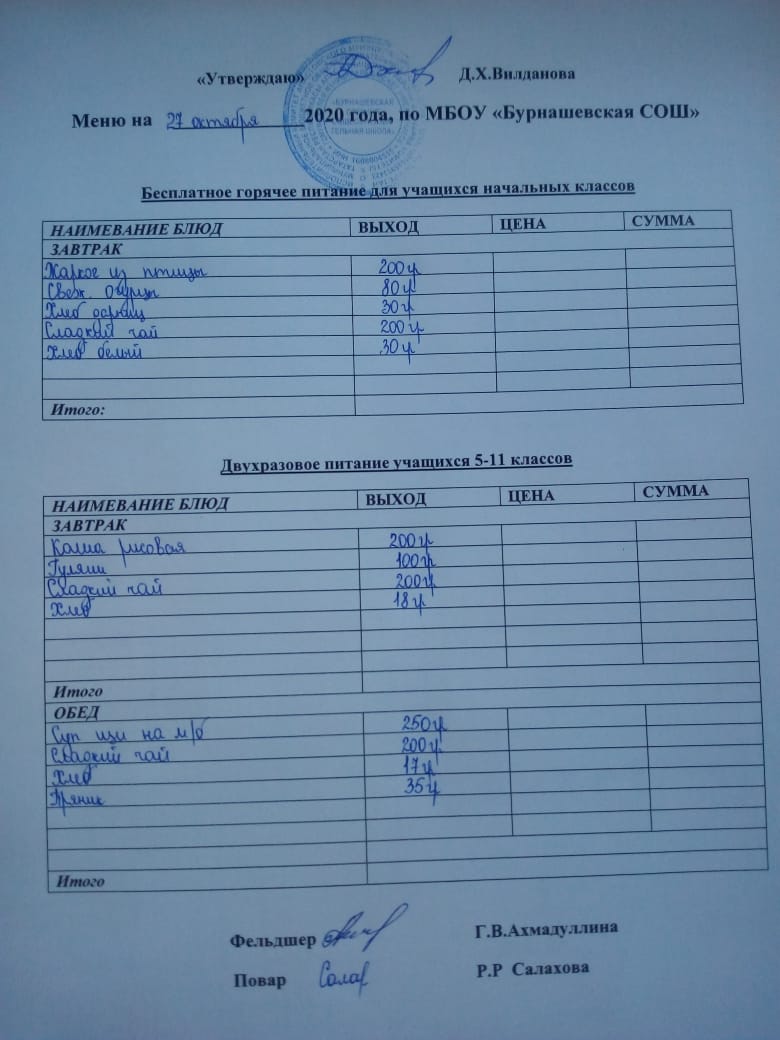 «Утверждаю» Д.Х.Вилданова
Меню на 27 октября 2020 года, по МБОУ «Бурнашевская СОШ»
«БУРНАШЕВСКАЯ
ТЕЛЬНАЯ ШКОЛА»
Бесплатное горячее питание для учащихся начальных классов
НАИМЕВАНИЕ БЛЮД ВЫХОД ЦЕНА СУММА
ЗАВТРАК
Жаркое из птицы 200гр
Свеж. Огурцы 80гр
Хлеб 30гр
Сладкий чай 200гр
Хлеб белый 30гр
Итого:
Двухразовое питание учащихся 5-11 классов
НАИМЕВАНИЕ БЛЮД ВЫХОД ЦЕНА СУММА
ЗАВТРАК
Каша рисовая 200гр
Гуляш 100гр
Сладкий чай 200гр
Хлеб 18гр
Итого
ОБЕД
Суп щи на м/б 250гр
Сладкий чай 200гр
Хлеб 17гр
Пряник 35гр
Итого
Фельдшер Г.В.Ахмадуллина
Повар Салах Р.Р Салахова